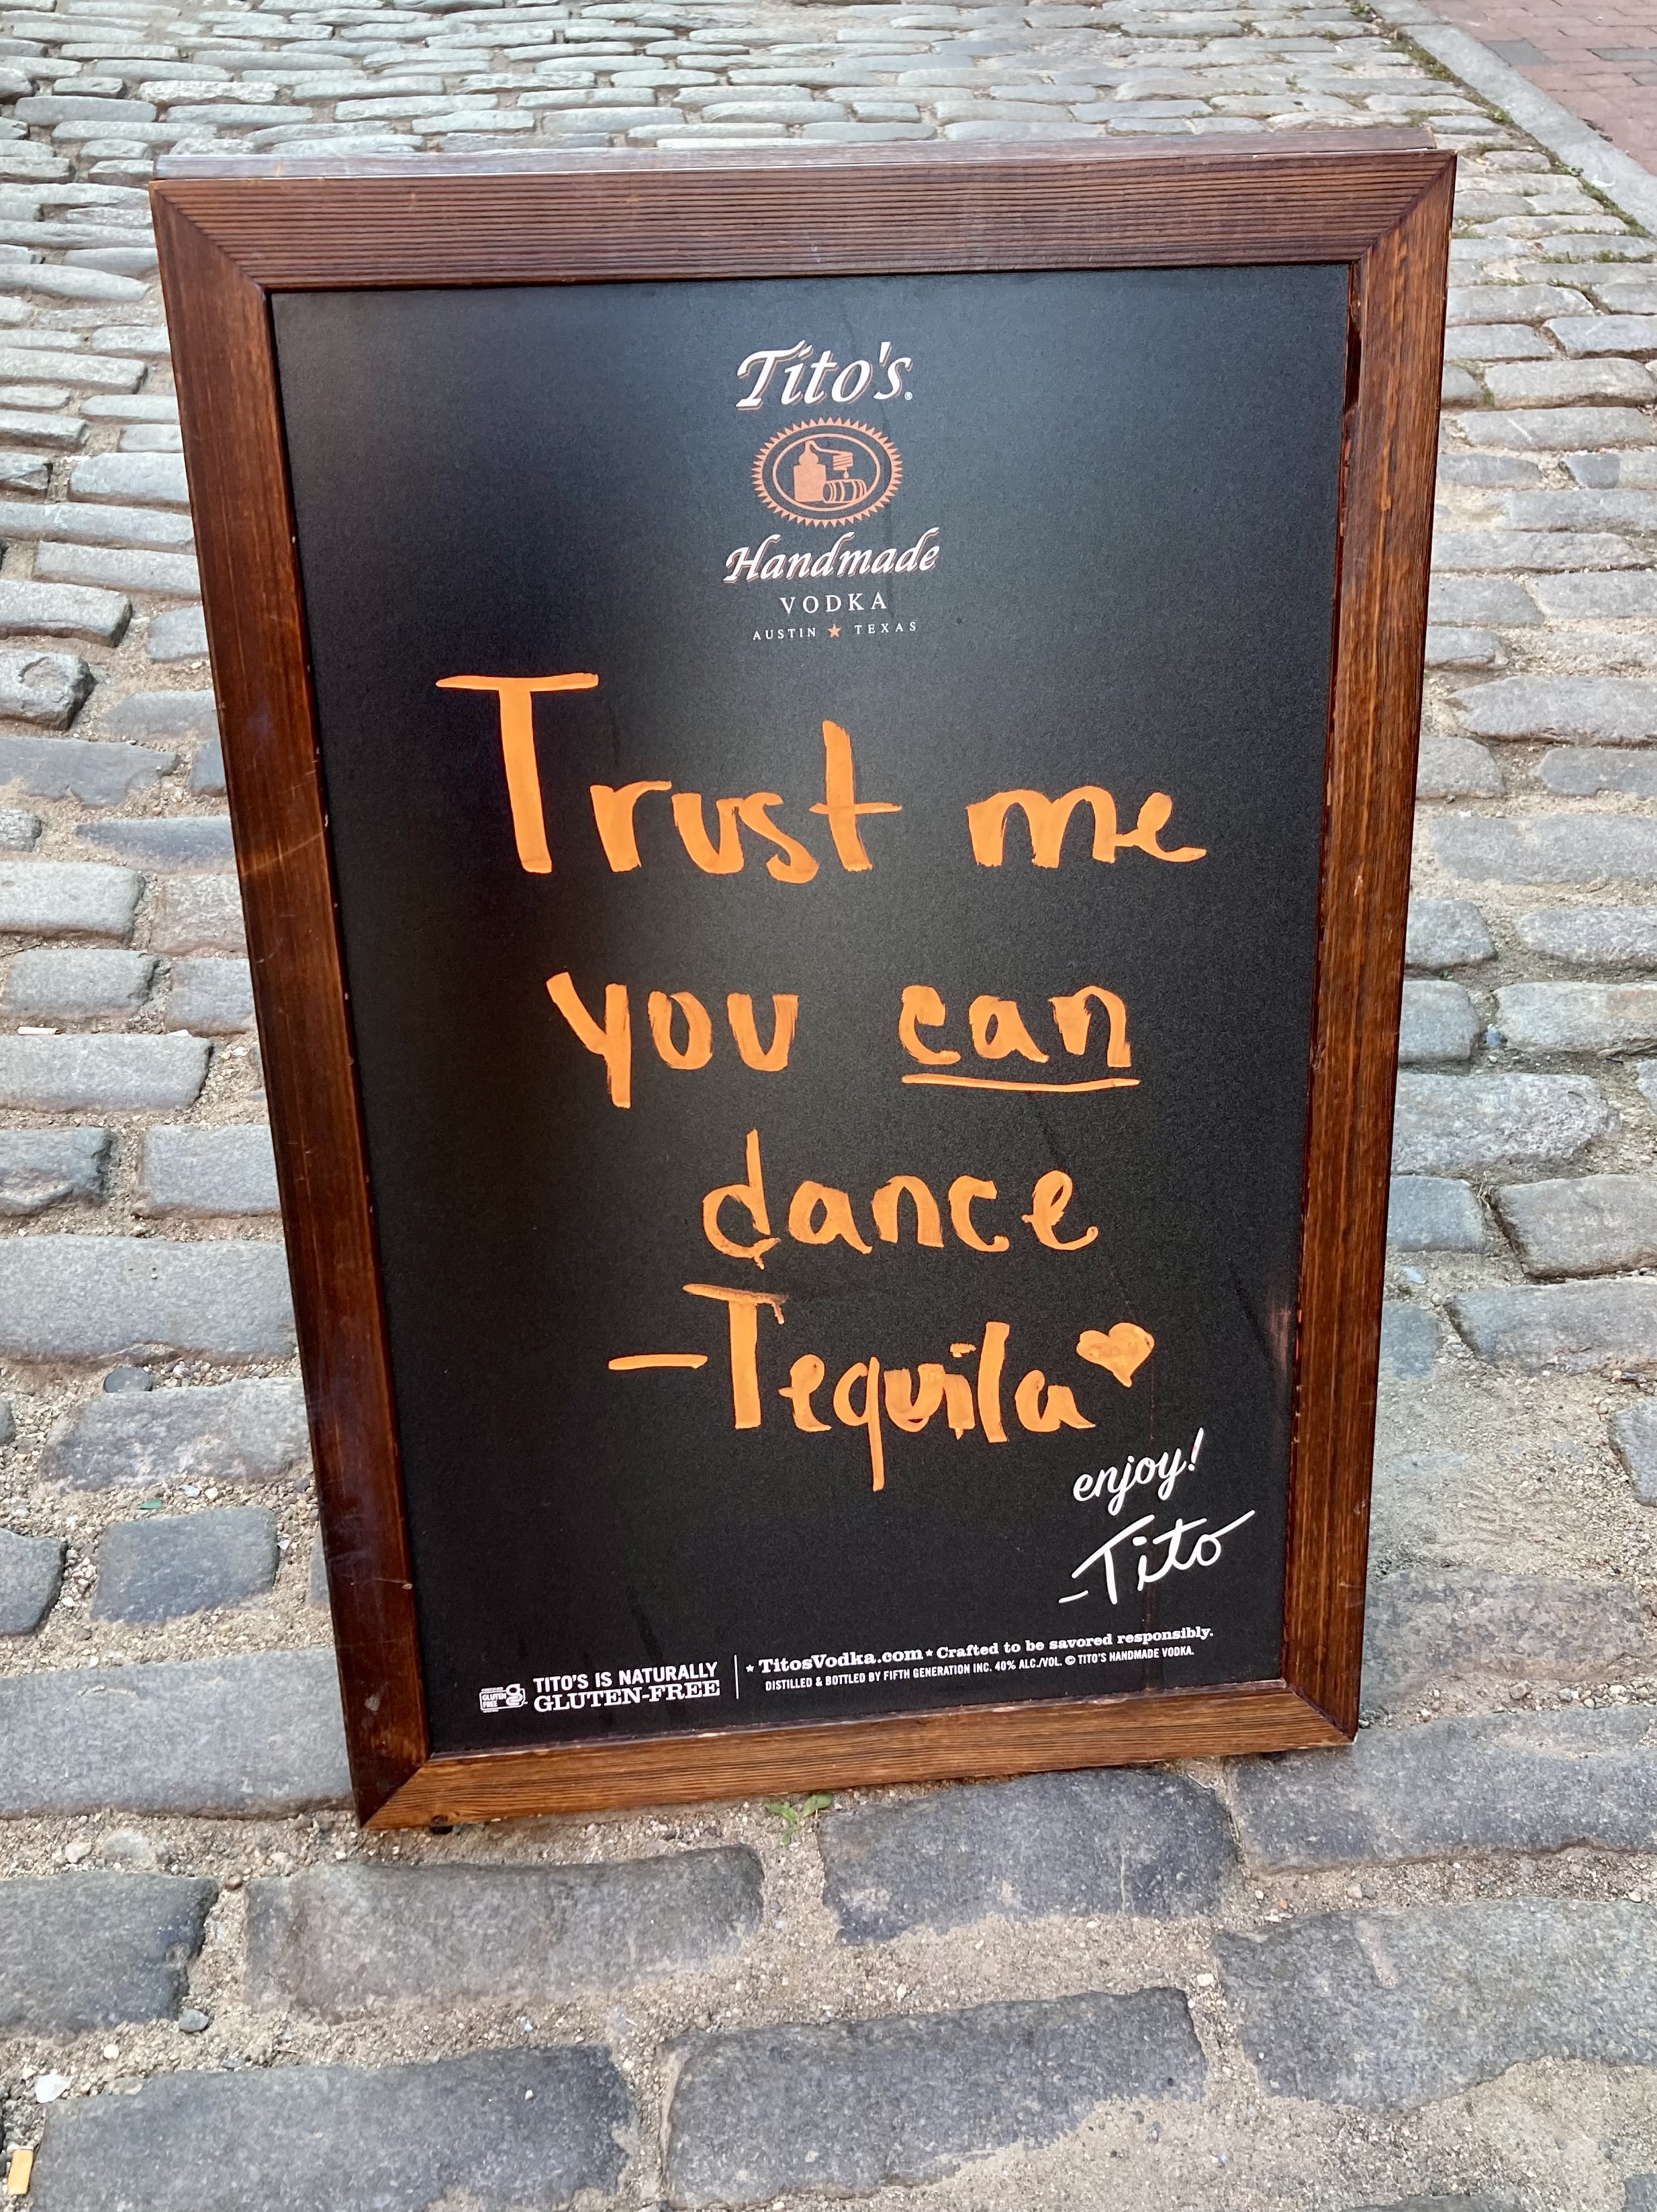 Tito's®
Handmade
VODKA
AUSTIN ★ TEXAS
Trust me
you can
dance
-Tequila ♥
enjoy!
-Tito
TITO'S IS NATURALLY
GLUTEN-FREE
★ TitosVodka.com ★ Crafted to be savored responsibly.
DISTILLED & BOTTLED BY FIFTH GENERATION INC. 40% ALC./VOL. © TITO'S HANDMADE VODKA.
GLUTEN
FREE